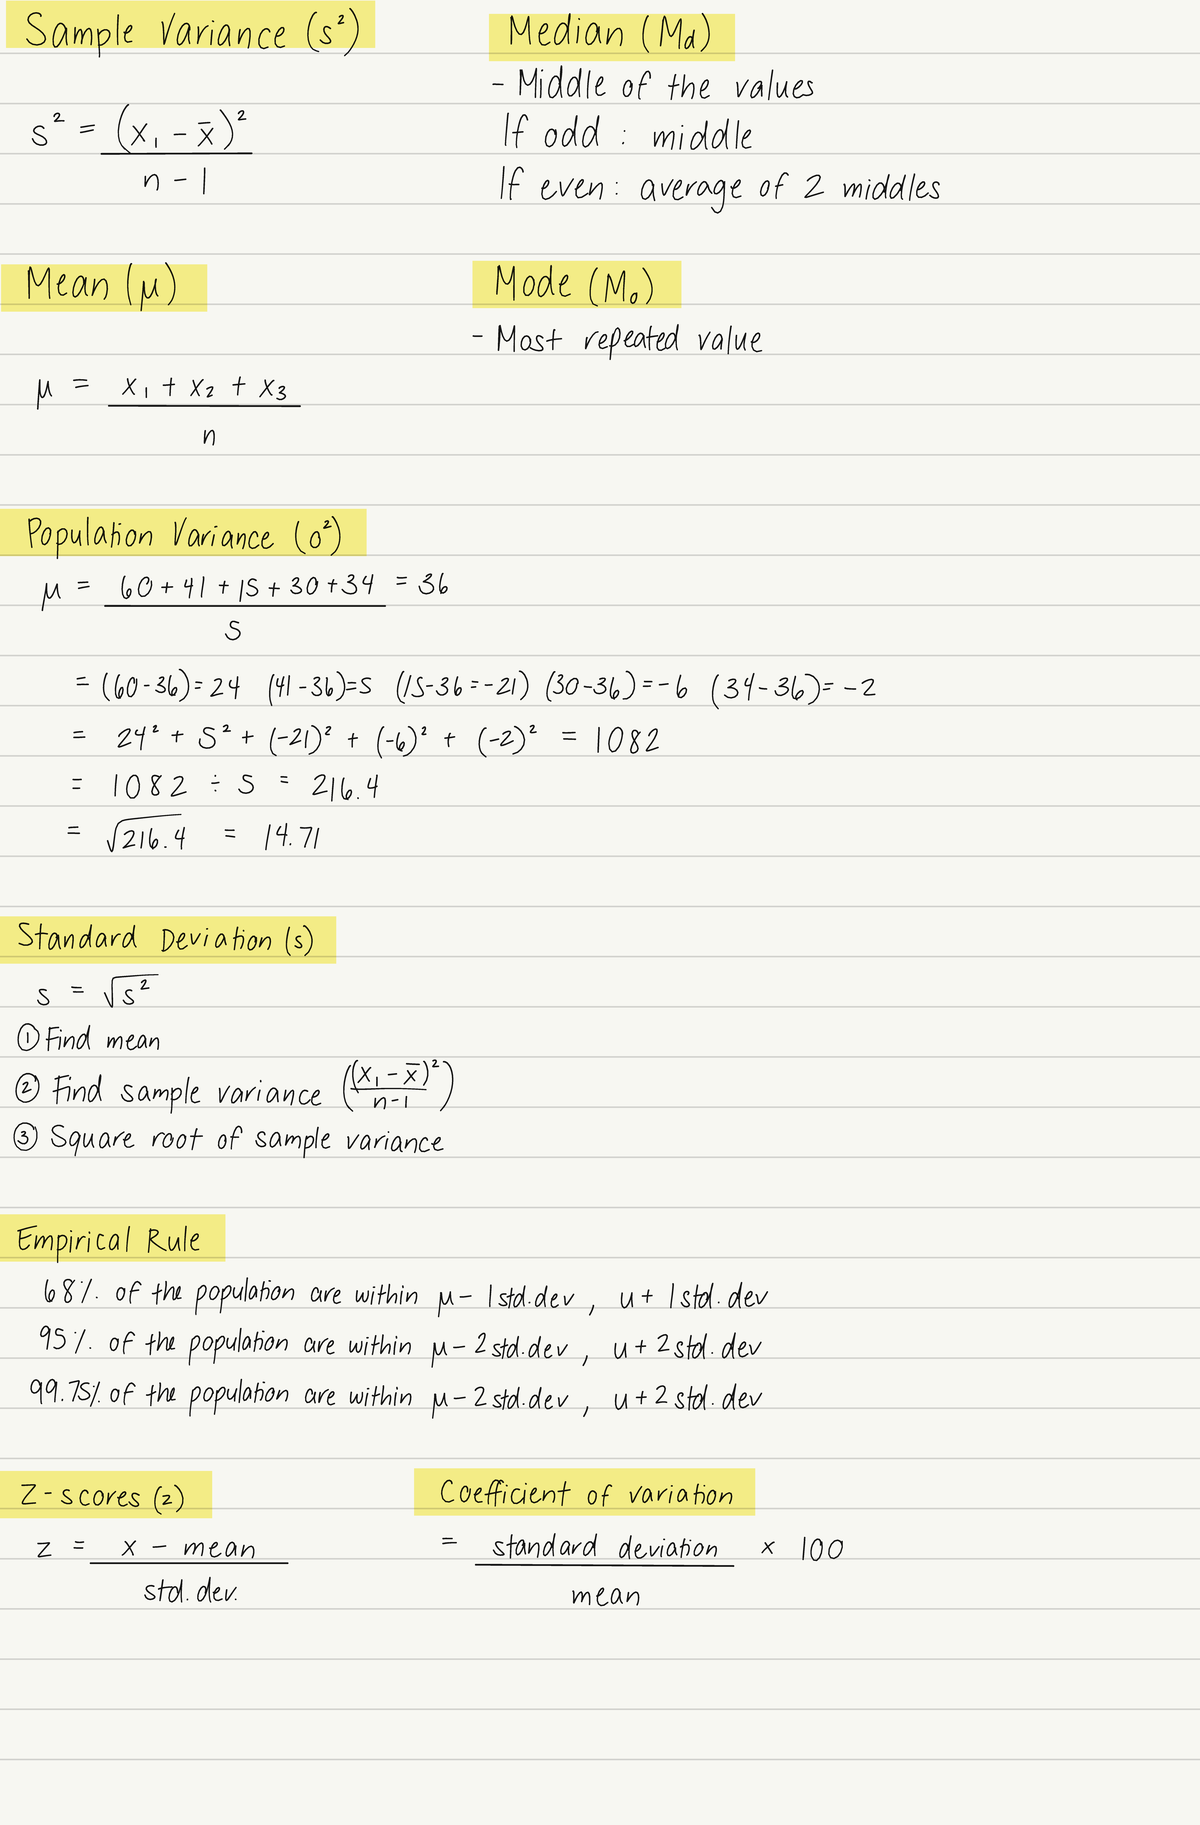 Sample Variance (s²)
s² = (x₁ - x̄)²
n - 1
Median (Md)
- Middle of the values
If odd : middle
If even : average of 2 middles
Mean (μ)
μ = x₁ + x₂ + x₃
n
Mode (Mo)
- Most repeated value
Population Variance (o²)
μ = 60 + 41 + 15 + 30 + 34 = 36
5
= (60-36) = 24 (41-36)=5 (15-36=-21) (30-36)=-6 (34-36)= -2
= 24² + 5² + (-21)² + (-6)² + (-2)² = 1082
= 1082 ÷ 5 = 216.4
= √216.4 = 14.71
Standard Deviation (s)
s = √s²
① Find mean
② Find sample variance ((x₁ - x̄)² / n-1)
③ Square root of sample variance
Empirical Rule
68% of the population are within μ- 1 std.dev , u+ 1 std. dev
95% of the population are within μ- 2 std.dev , u+ 2 std. dev
99.75% of the population are within μ- 2 std.dev , u+ 2 std. dev
Z-scores (z)
z = x - mean
std. dev.
Coefficient of variation
= standard deviation × 100
mean